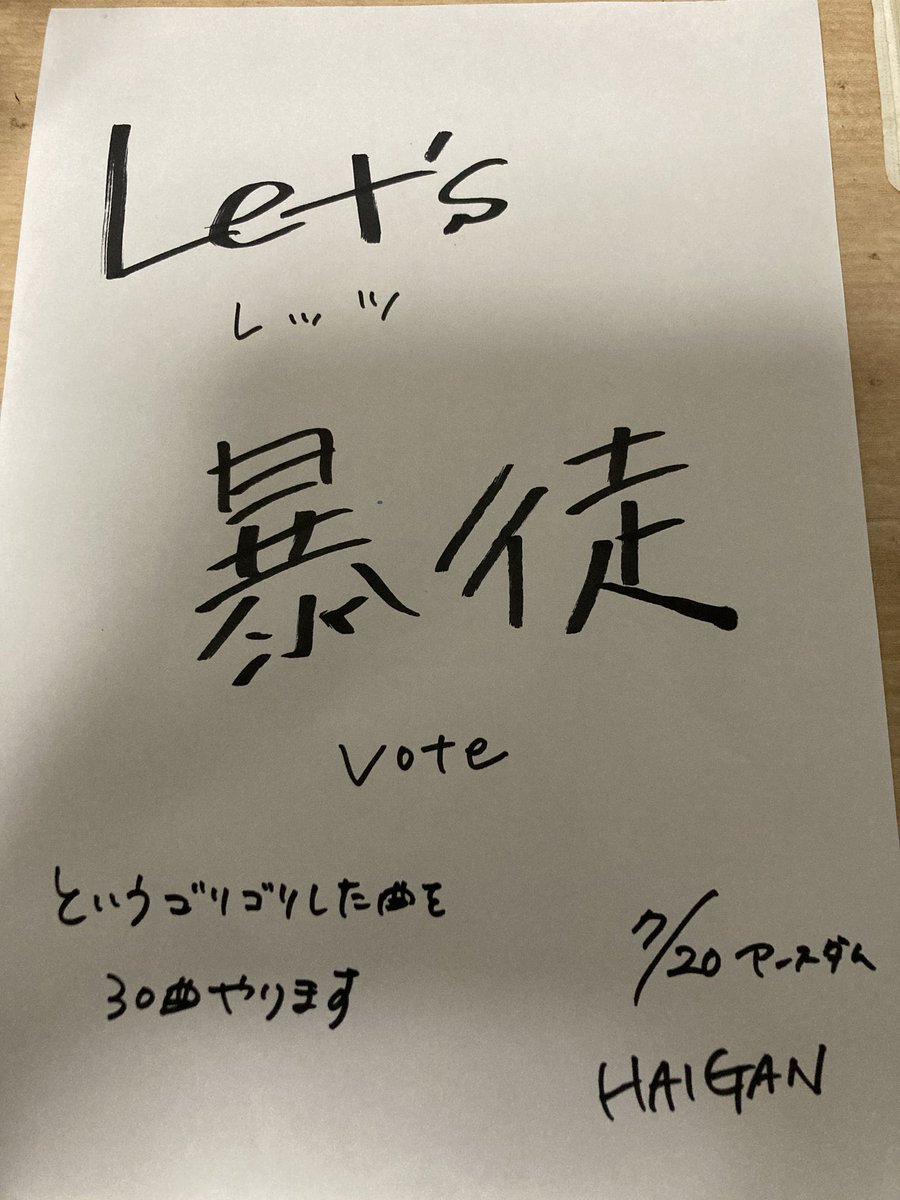 Let's
レッツ
暴徒
vote
というゴリゴリした曲を
30曲やります
7/20 アースダム
HAIGAN